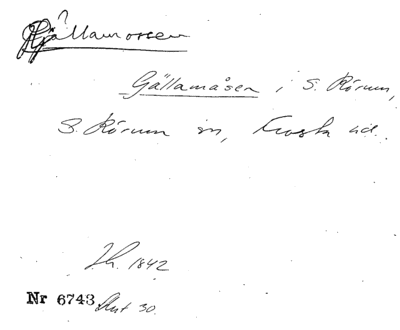 ?
Gjällamossen
Gjällamåsen i S. Rörum,
S. Rörum sn, Frosta hd.
1842
Nr 6743 Ant 30.